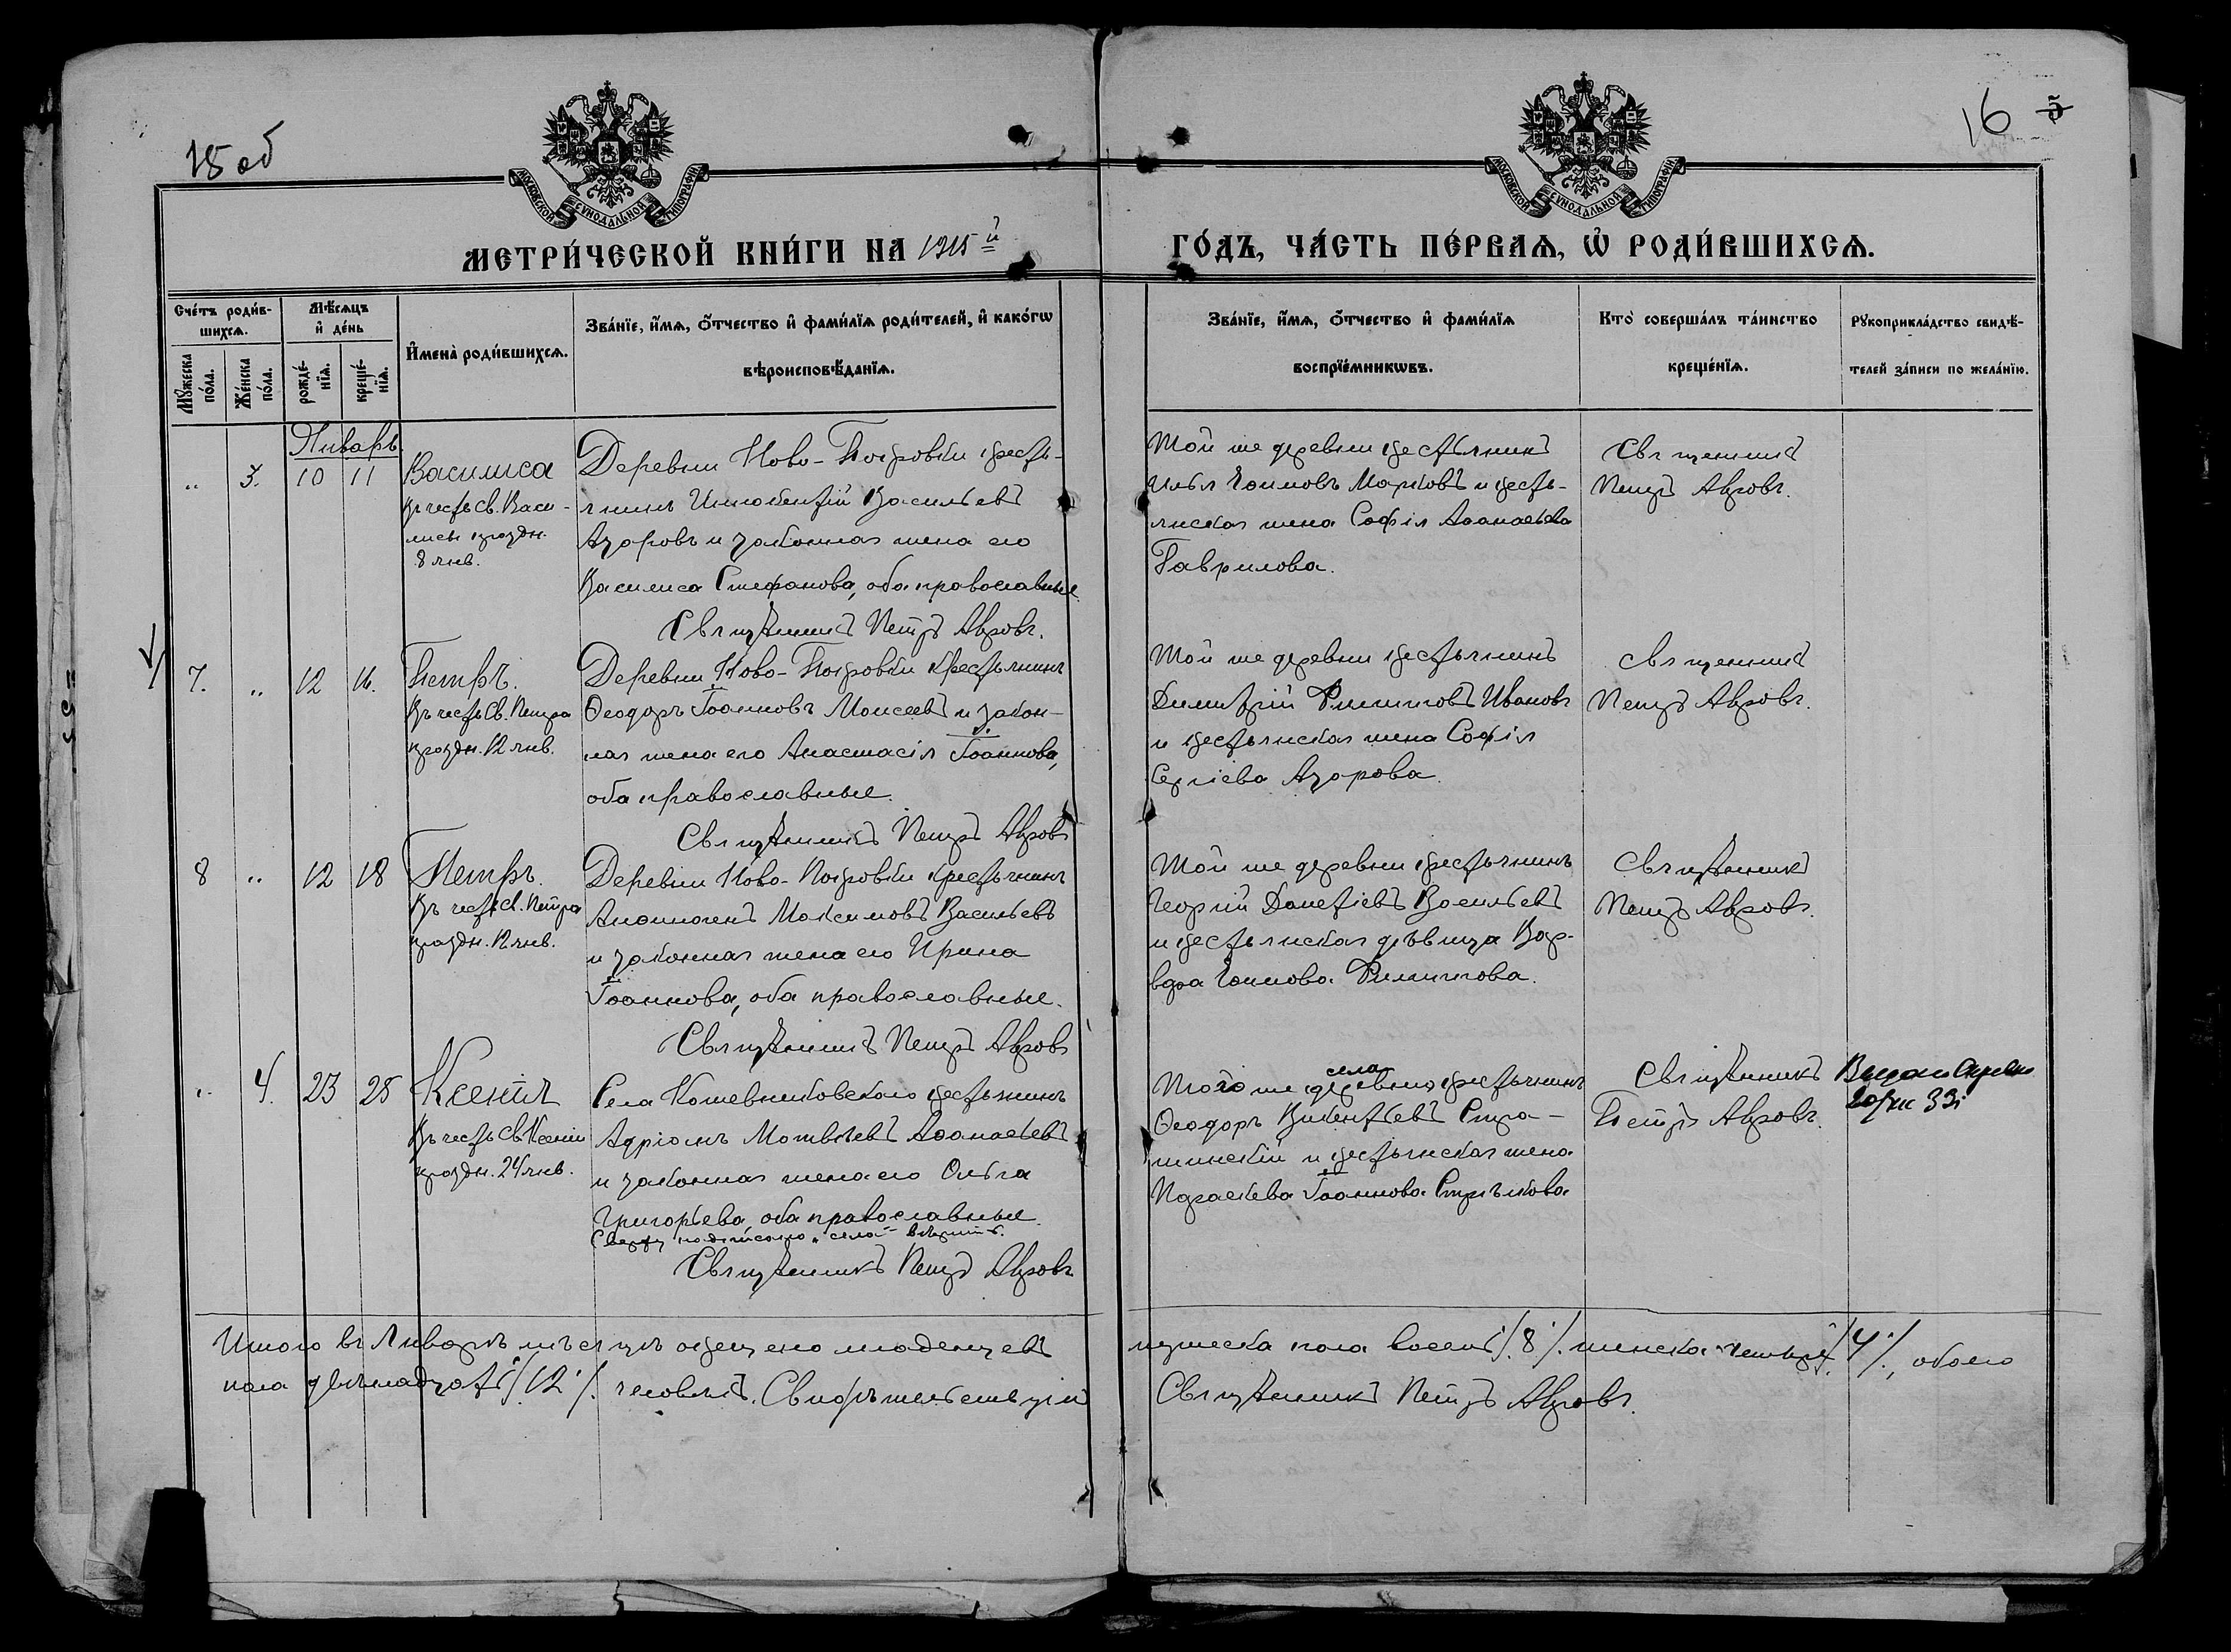 15 об
16
МОСКОВСКОЙ СУНОДАЛЬНОЙ ТИПОГРАФІИ
МОСКОВСКОЙ СУНОДАЛЬНОЙ ТИПОГРАФІИ
МЕТРИ́ЧЕСКОЙ КНИ́ГИ НА 1915й
ГО́ДЪ, ЧА́СТЬ ПЕ́РВАѦ, Ѡ҆ РОДИ́ВШИХСѦ.
Сче́тъ роди́в-
шихсѧ.
Мѣ́сѧцъ
и҆ де́нь
Мꙋ́жеска
по́ла.
Же́нска
по́ла.
рожде́-
нїѧ.
креще́-
нїѧ.
И҆мена̀ роди́вшихсѧ.
Зва́нїе, и҆́мѧ, ѻ҆́тчество и҆ фами́лїѧ роди́телей, и҆ како́гѡ
вѣроисповѣ́данїѧ.
Зва́нїе, и҆́мѧ, ѻ҆́тчество и҆ фами́лїѧ
воспрїе́мникѡвъ.
Кто̀ соверша́лъ та́инство
креще́нїѧ.
Рꙋкоприкла́дство свидѣ́-
телей за́писи по жела́нїю.
Январь.
„ 3. 10 11
Василиса
Въ честь св. Васи-
лисы праздн.
8 янв.
Деревни Ново-Покровки кресть-
янинъ Иннокентій Васильевъ
Азаровъ и законная жена его
Василиса Стефанова, оба православные.
Священникъ Петръ Авровъ.
Той же деревни крестьянинъ
Илья Іоиловъ Марковъ и кресть-
янская жена Софія Аѳанасьева
Гаврилова.
Священникъ
Петръ Авровъ.
7. „ 12 16.
Петръ.
Въ честь св. Петра
праздн. 12 янв.
Деревни Ново-Покровки крестьянинъ
Ѳеодоръ Іоанновъ Моисеевъ и закон-
ная жена его Анастасія Іоаннова,
оба православные.
Священникъ Петръ Авровъ
Той же деревни крестьянинъ
Димитрій Филипповъ Ивановъ
и крестьянская жена Софія
Сергіева Азарова.
Священникъ
Петръ Авровъ.
8 „ 12 18
Петръ.
Въ честь св. Петра
праздн. 12 янв.
Деревни Ново-Покровки крестьянинъ
Аполлонъ Максимовъ Васильевъ
и законная жена его Ирина
Іоаннова, оба православные.
Священникъ Петръ Авровъ
Той же деревни крестьянинъ
Георгій Васильевъ
и крестьянская дѣвица Вар-
вара Іоилова Филиппова.
Священникъ
Петръ Авровъ.
„ 4. 23 25
Ксенія
Въ честь св. Ксеніи
праздн. 24 янв.
Села Кожевниковскаго крестьянинъ
Адріанъ Матвѣевъ Аѳанасьевъ
и законная жена его Ольга
Григорьева, оба православные.
Сверху надписано „села" вѣрить.
Священникъ Петръ Авровъ
села
Того же деревни крестьянинъ
Ѳеодоръ Викентьевъ Стра-
шинскій и крестьянская жена
Параскева Іоаннова Стрѣлкова
Священникъ
Петръ Авровъ.
Итого въ Январѣ мѣсяцѣ крещено младенцевъ
мужеска пола восемь /8/. женска четыре /4/, обоего
пола двѣнадцать /12/. человѣкъ.
Священникъ Петръ Авровъ.